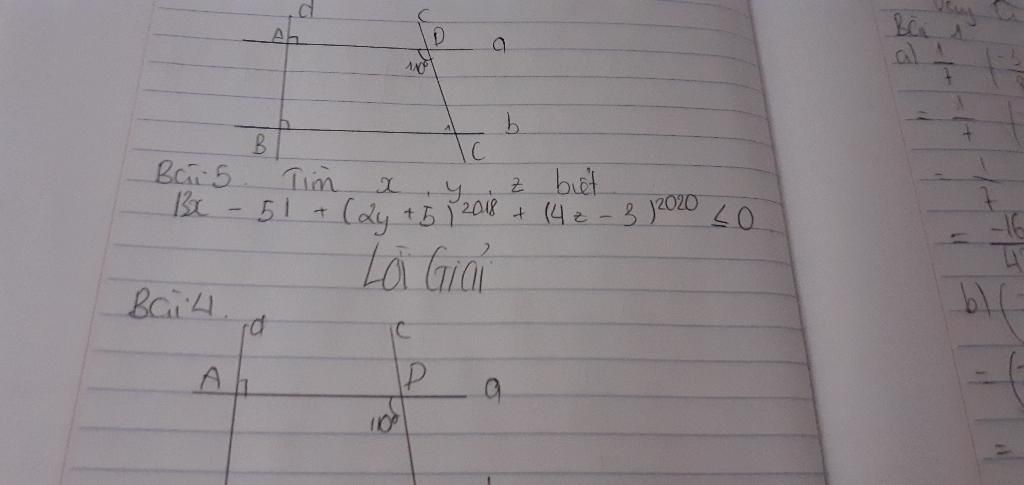 d
C
A
D
a
110°
B
b
C
Bài 5. Tìm x, y, z biết
|3x - 5| + (2y + 5)^2018 + (4z - 3)^2020 ≤ 0
Lời Giải
Bài 4.
d
C
A
D
a
110°
Bài 1
a) 1/7
= 1/7
= 1/7
= -16/4
b) (
= (
=